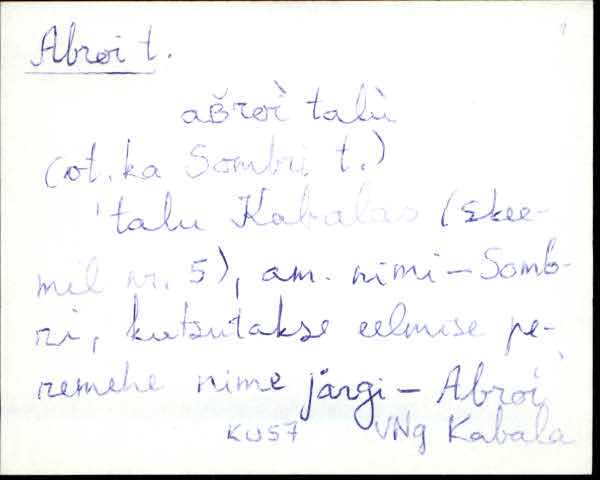 Abroi t.
aʙ̆roì talù
(vt. ka Sombri t.)
'talu Kabalas (skee-
mil nr. 5), am. nimi – Somb-
ri, kutsutakse eelmise pe-
remehe nime järgi – Abroì
KU57 VNg Kabala